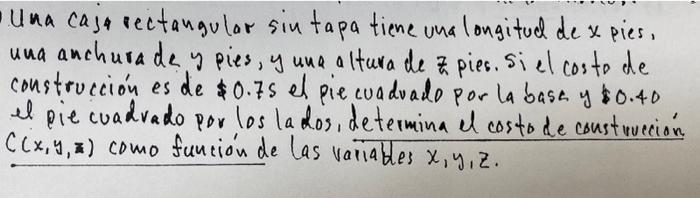 Una caja rectangular sin tapa tiene una longitud de x pies,
una anchura de y pies, y una altura de z pies. Si el costo de
construcción es de $0.75 el pie cuadrado por la base y $0.40
el pie cuadrado por los lados, determina el costo de construcción
C(x,y,z) como función de las variables x,y,z.